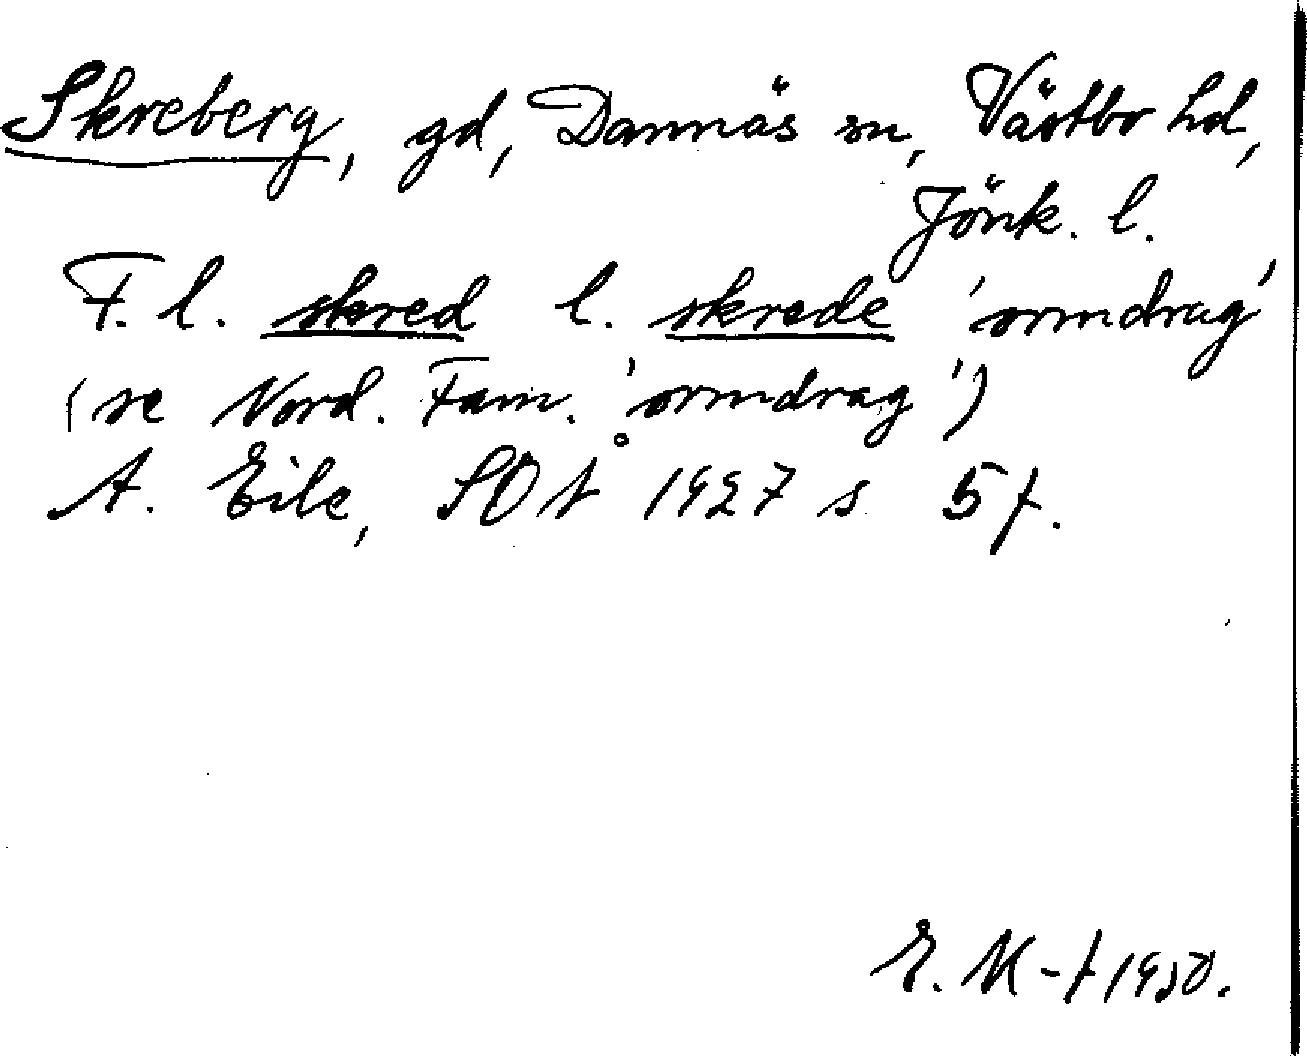 Skreberg, gd, Dannäs sn, Västbo hd,
Jönk. l.
F. l. skred l. skrede 'ormdrag'
(se Nord. Fam. 'ormdrag')
A. Eile, SOÅ 1927 s 5 f.
E. M-t 1950.